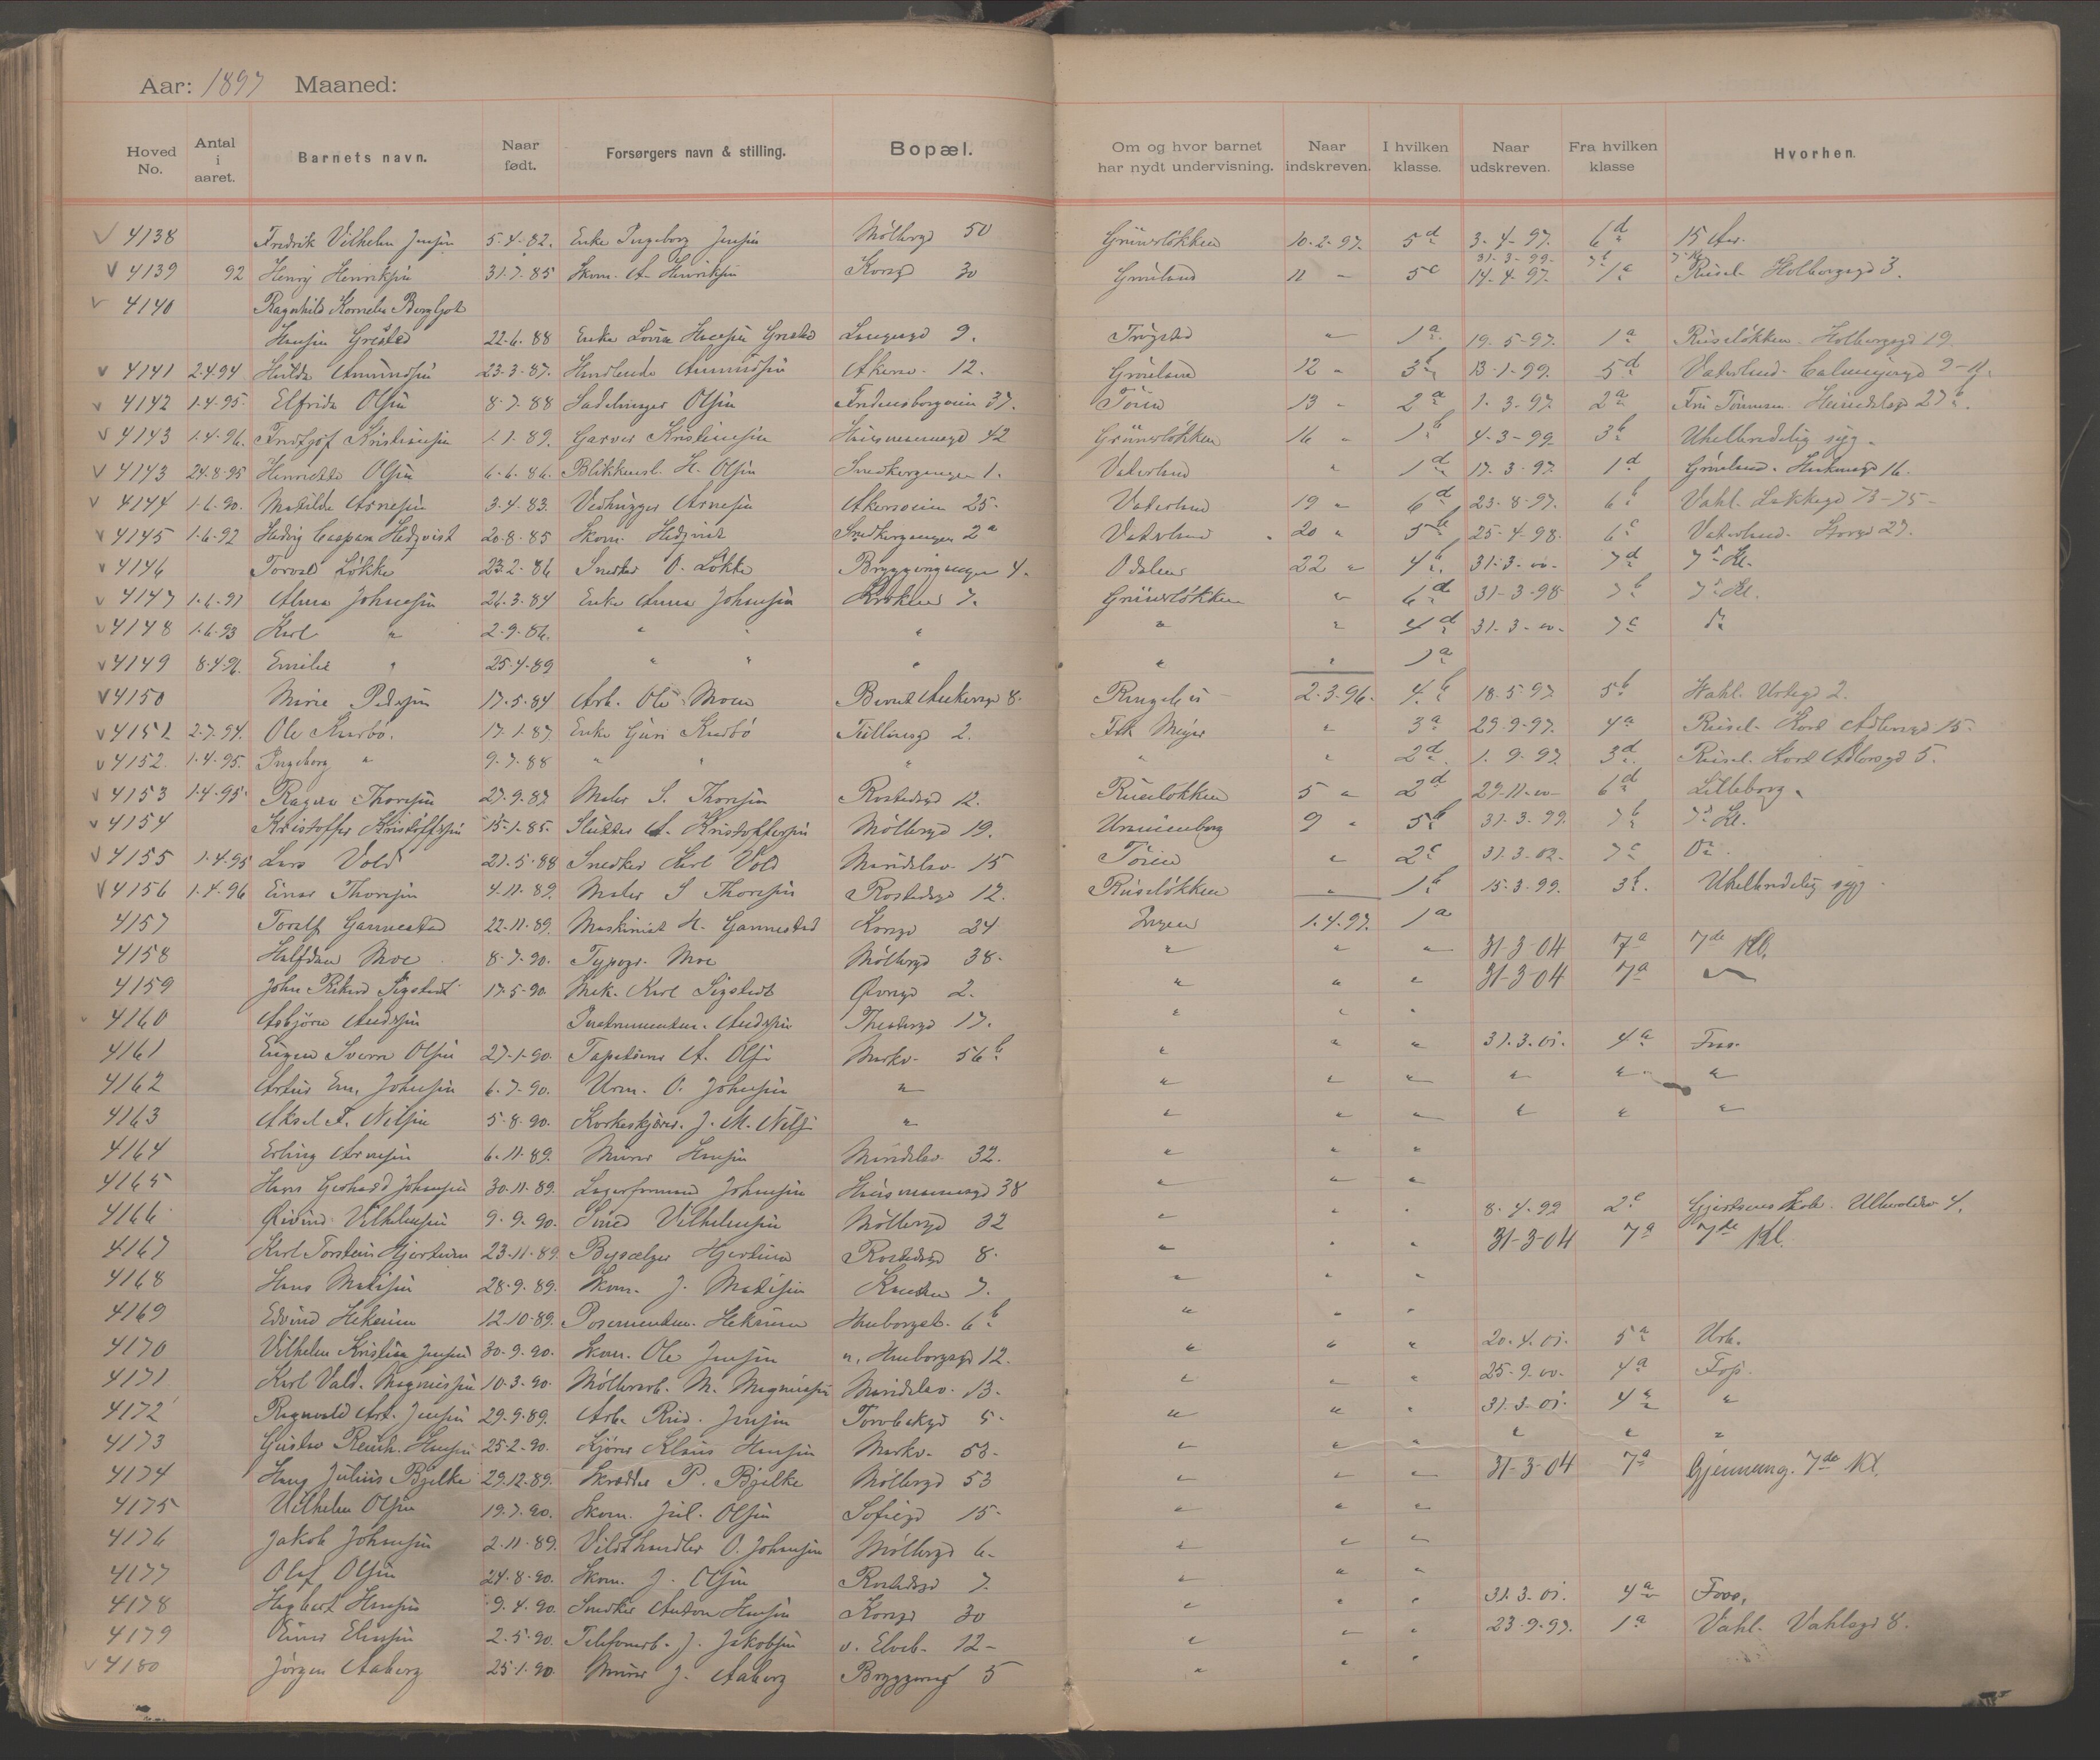 Aar: 1897 Maaned:
Hoved No. Antal i aaret. Barnets navn. Naar født. Forsørgers navn & stilling. Bopæl. Om og hvor barnet har nydt undervisning. Naar indskreven. I hvilken klasse. Naar udskreven. Fra hvilken klasse Hvorhen.
4138 Fredrik Vilhelm Jensen 5.4.82. Enke Ingeborg Jensen Møllergd 50 Grünerløkken 10.2.97. 5d 3-4-97. 6d 15 Aar.
31-3-99 7b 7 Kl
4139 92 Henrij Henriksen 31.7.85 Skom. A. Henriksen Korsgd 30 Grønland 11 - 5c 14-4-97. 1a Rusel. Holbergsgd 3.
4140 Ragnhild Kornelia Bergljot
Hansen Grested 22-6-88 Enke Lovise Hansen Grested Langesgd 9. Trøgstad " 1a 19.5-97. 1a Ruseløkken. Holbergsgd 19
4141 2.4.94 Hulda Amundsen 23-3-87. Handlende Amundsen Akersv. 12. Grønland 12 " 3b 13-1-99. 5d Vaterland. Calmeyersgd 9-11.
4142 1.4.95. Elfrida Olsen 8.7.88 Sadelmager Olsen Fredensborgveien 37. Tøien 13 - 2a 1. 3-97. 2a Frk Tønnesen.
4143 1.4.96. Fridtjof Kristiansen 1.1.89. Garver Kristiansen Hausmannsgd 42 Grünerløkken 16 " 1b 4-3-99 3b Uhelbredelig syg.
4143 24.8.95 Henriette Olsen 6.6.86. Blikkensl. H. Olsen Snedkergangen 1. Vaterland " 1d 17.3.97. 1d Grønland. 16.
4144 1.6.90. Matilde Arnesen 3.4.83. Vedhugger Arnesen Akersveien 25. Vaterland 19 " 6d 23-8-97. 6b Vahl. Lakkegd 73-75-
4145 1.6.92 Hedvig Caspara Hedqvist 20.8.85 Skom. Hedqvist Snedkergangen 2a Vaterland 20 " 5b 25-4-98. 6c Vaterland. Storgd 27.
4146 Torvald Løkke 23.2.86 Snedker O. Løkke Bryggerigangen 4. Odalen 22 " 4b. 31-3-00. 7d 7de Kl.
4147 1.6.91 Alma Johansen 26.3.84 Enke Anna Johansen Kroken 7. Grünerløkken " 6d 31-3-98 7b 7de Kl.
4148 1.6.93 Karl " 2.9.86. " " " " " 4d 31-3-00- 7c do
4149 8.4.96. Emilie " 25.4.89 " " " " " 1a
4150 Marie Pedersen 17.5.84 Arb. Ole Moen Bernt Ankersgd 8. Ringebu 2.3.96. 4.b 18.5-97 5b Wahl. Urtegd 2.
4151 2.7.94. Ole Kurbö. 17.1.87 Enke Guri Kurbö Tullinsgd 2. Frk Meyer " 3a 29-9-97. 4a Rusel. Kort Adlersgd 15.
4152 1.4.95. Ingeborg " 9.7.88 " " " " " 2d 1. 9-97. 3d. Rusel. Kort Adlersgd 5.
4153 1.4.95. Ragna Thoresen 27.9.87 Maler S. Thoresen Rostedsgd 12. Ruseløkken 5 " 2d 29-11-00- 6d Lilleborg.
4154 Kristoffer Kristoffersen 15.1.85. Slutter A. Kristoffersen Møllergd 19. Uranienborg 9 " 5b 31.3.99. 7b 7de Kl.
4155 1.4.95 Lars Vold 21.5.88 Snedker Karl Vold Maridalsv. 15 Tøien " 2c 31.3.02. 7c Do.
4156 1.4.96 Einar Thoresen 4.11.89. Maler S Thoresen Rostedsgd 12. Ruseløkken " 1b 15.3.99. 3b. Uhelbredelig syg.
4157 Toralf Gannestad 22.11.89. Maskinist H. Gannestad Korsgd 24 Ingen 1.4.97. 1a
4158 Halfdan Moe 8.7.90. Typogr. Moe Møllergd 38. " " " 31-3-04 7a 7de Kl.
4159 John Rikard Sigstedt 17.5.90. Mek. Karl Sigstedt Øvregd 2. " " " 31-3-04 7a "
4160 Asbjørn Andersen Instrumentm. Andersen Theatergd 17. " " "
4161 Eugen Sverre Olsen 27-1-90. Tapetserer A. Olsen Markv. 56b " " " 31.3.01. 4a Foss.
4162 Artur Em. Johnsen 6.7.90. Urm. O. Johnsen " " " " " " "
4163 Aksel F. Nilsen 5.8.90. Korkeskjærer. J. M. Nils. " " " " " " "
4164 Erling Arnesen 6.11.89. Murer Hansen Maridalsv. 32. " " "
4165 Hans Gerhard Johansen 30.11.89. Lagerformand Johansen Hausmannsgd 38 " " "
4166 Øivind Vilhelmsen 9.9.90. Smed Vilhelmsen Møllergd 32 " " " 8.4.99 2c Gjertsens skole. Ullevoldsv 4.
4167 Karl Torstein Hjertum 23.11.89. Bysælger Hjertum Rostedsgd 8. " " " 31-3-04 7a 7de Kl.
4168 Hans Matisen 28.9.89. Skom. J. Matisen Kroken 7. " " "
4169 Edvind Hekman 12.10.89. Posementm. Hekman 6b " " "
4170 Vilhelm Kristian Jensen 30.9.90. Skom. Ole Jensen 12. " " " 20.4.01. 5a Urb.
4171 Karl Vald. Magnussen 10.3.90. Møllerarb. M. Magnussen Maridalsv. 13. " " " 25.9.00. 4a Fop.
4172 Ragnvald Art. Jensen 29.9.89. Arb. Rud. Jensen Torvbakgd 5. " " " 31.3.01. 4a "
4173 Gustav Reinh. Hansen 25.2.90. Kjører Klaus Hansen Markv. 53. " " " " " "
4174 Haug Julius Bjelke 29.12.89. Skrædder P. Bjelke Møllergd 53 " " " 31-3-04 7a Gjennemg. 7de Kl.
4175 Vilhelm Olsen 19.7.90. Skom. Jul. Olsen Sofiegd 15. " " "
4176 Jakob Johansen 2.11.89. Vildthandler O. Johansen Møllergd 6. " " "
4177 Olaf Olsen 24.8.90. Skom. J. Olsen Rostedsgd 7. " " "
4178 Hagbart Hansen 9.4.90. Snedker Anton Hansen Korsgd 30 " " " 31.3.01. 4a Foss.
4179 Einar Eliasen 2.5.90. Telefonarb. J. Jakobsen v. Elveb. 12- " " " 23.9.97. 1a Vahl. Vahlsgd 8.
4180 Jørgen Aaberg 25.1.90. Murer J. Aaberg Bryggerigt 5 " " "